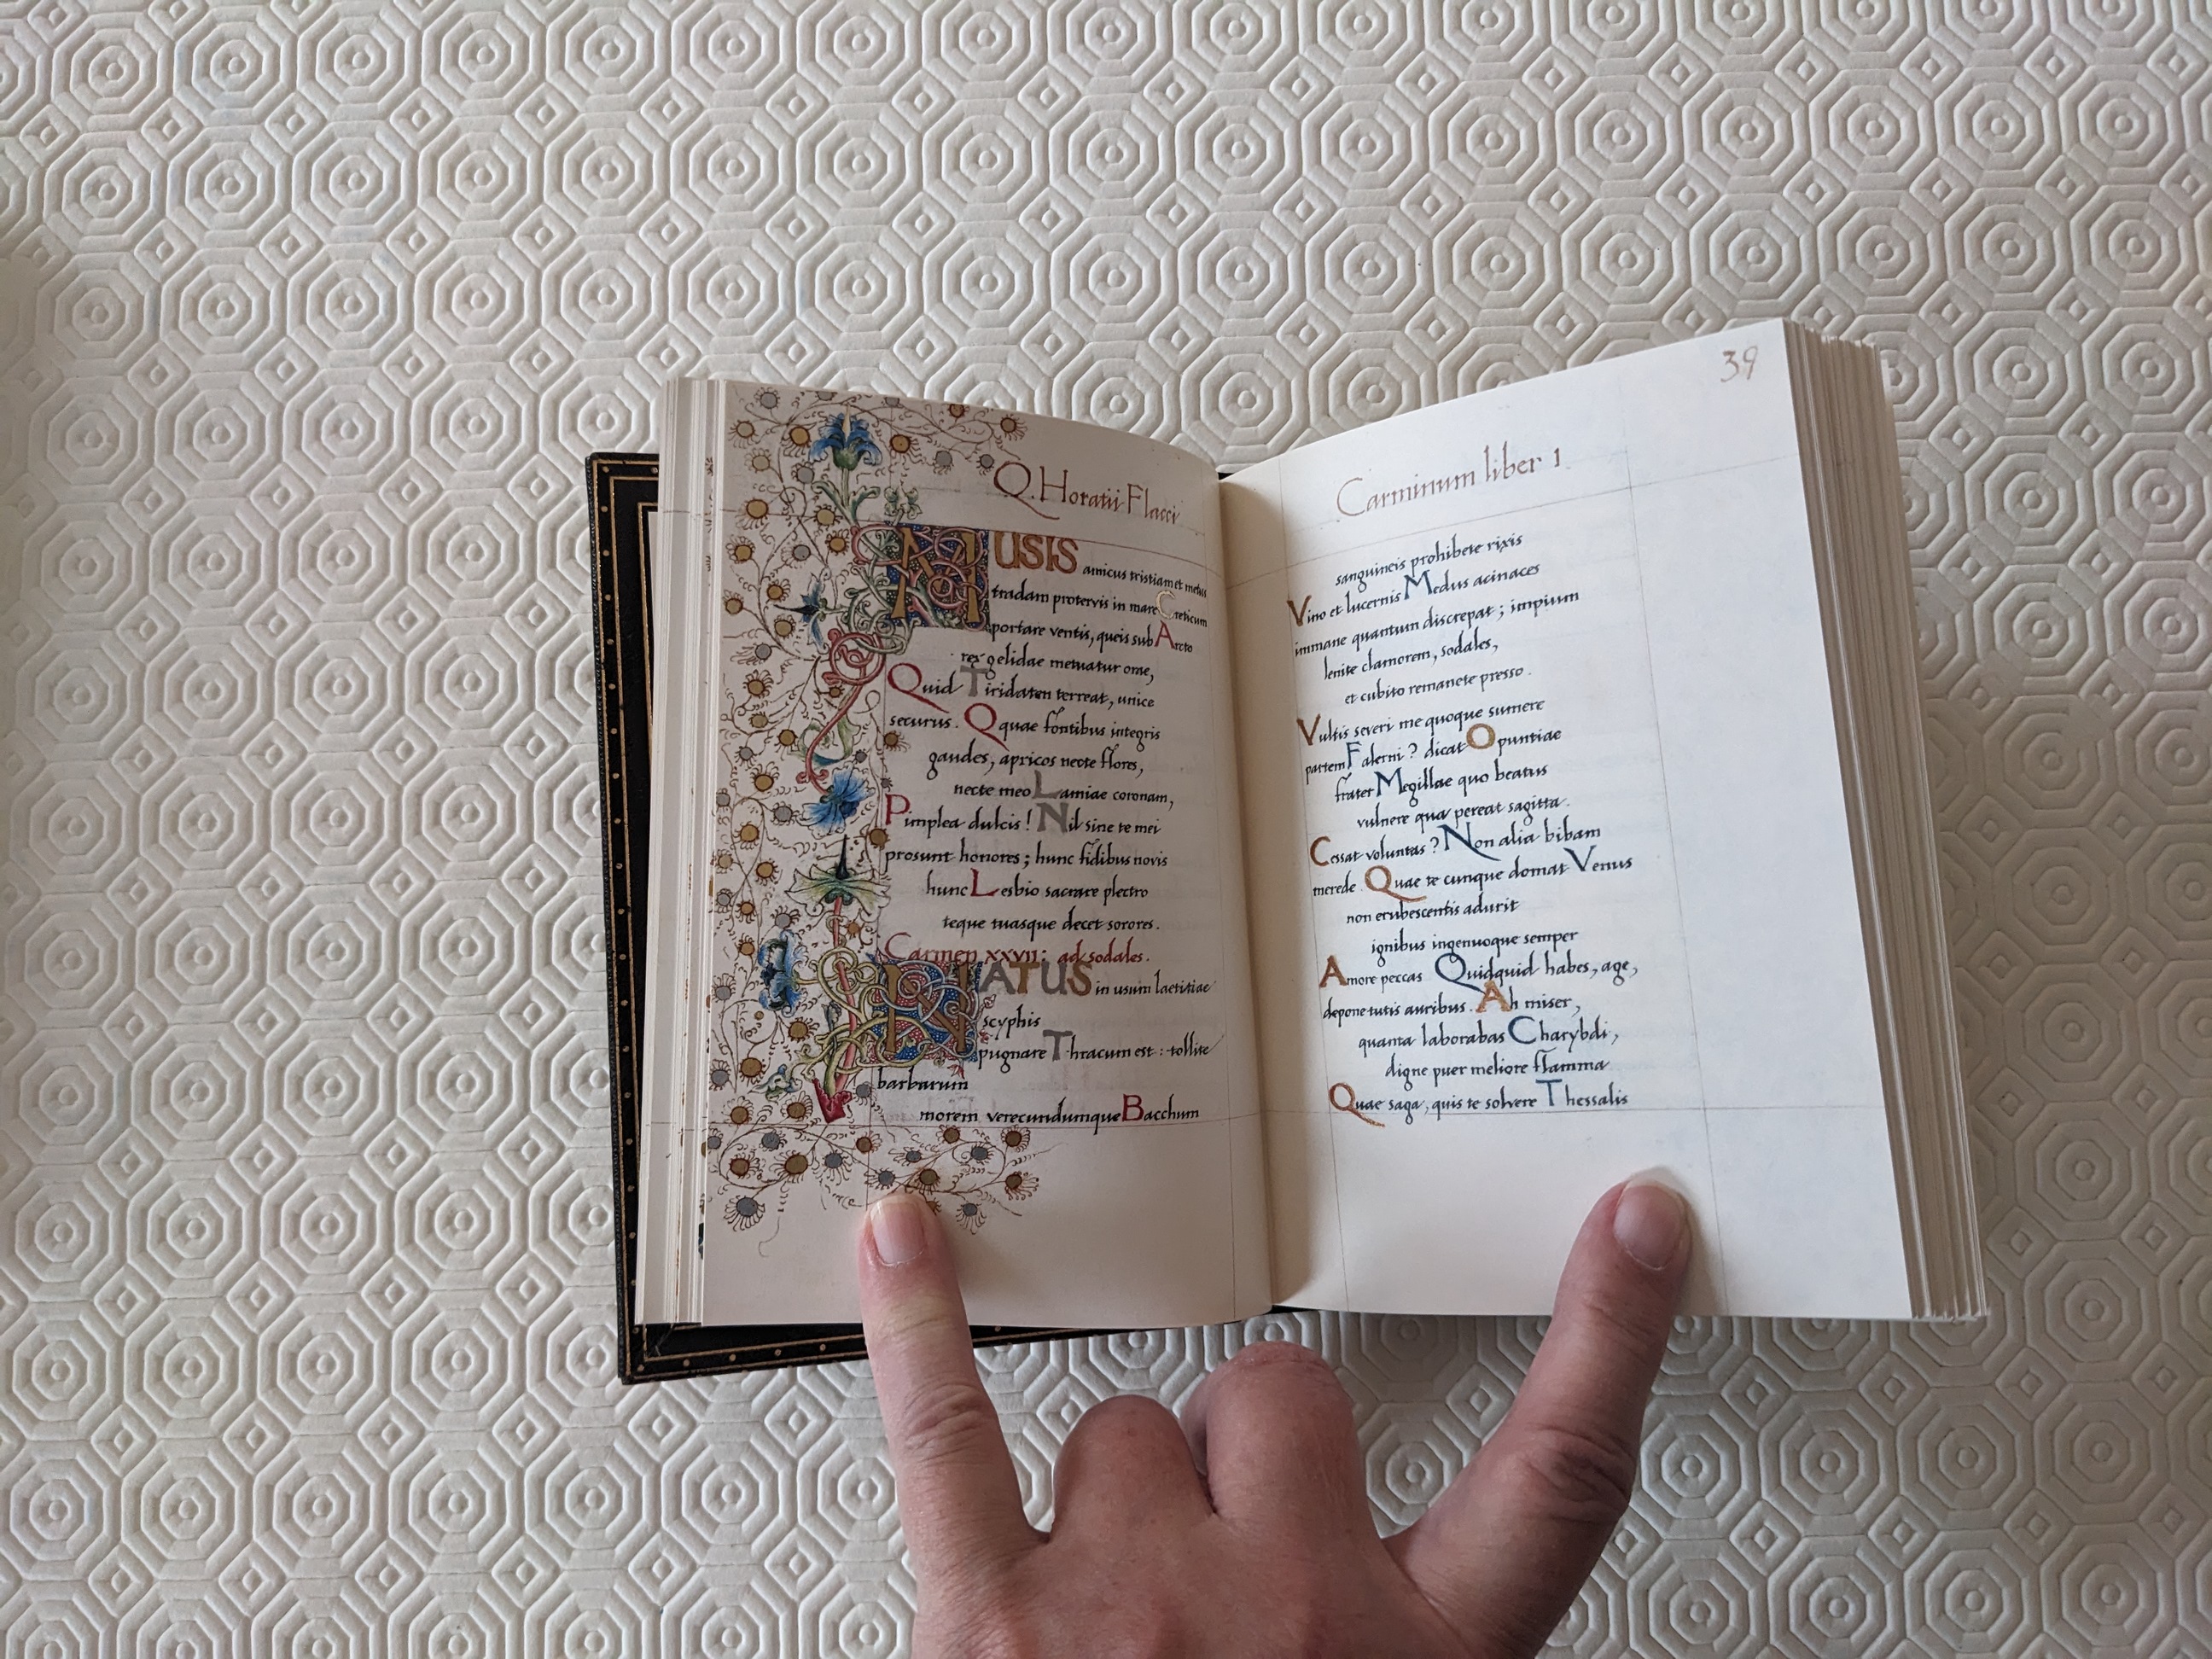 Q. Horatii Flacci
MUSIS amicus tristiam et metus
tradam protervis in mare Creticum
portare ventis, queis sub Arcto
rex gelidae metuatur orae,
Quid Tiridaten terreat, unice
securus. Quae fontibus integris
gaudes, apricos necte flores,
necte meo Lamiae coronam,
Pimplea dulcis! Nil sine te mei
prosunt honores; hunc fidibus novis
hunc Lesbio sacrare plectro
teque tuasque decet sorores.
Carmen xxvii: ad sodales.
NATUS in usum laetitiae
scyphis
pugnare Thracum est: tollite
barbarum
morem verecundumque Bacchum
39
Carminum liber 1
sanguineis prohibete rixis
Vino et lucernis Medus acinaces
immane quantum discrepat; impium
lenite clamorem, sodales,
et cubito remanete presso.
Vultis severi me quoque sumere
partem Falerni? dicat Opuntiae
frater Megillae quo beatus
vulnere qua pereat sagitta.
Cessat voluntas? Non alia bibam
merede. Quae te cunque domat Venus
non erubescentis adurit
ignibus ingenuoque semper
Amore peccas Quidquid habes, age,
depone tutis auribus. Ah miser,
quanta laborabas Charybdi,
digne puer meliore flamma
Quae saga, quis te solvere Thessalis